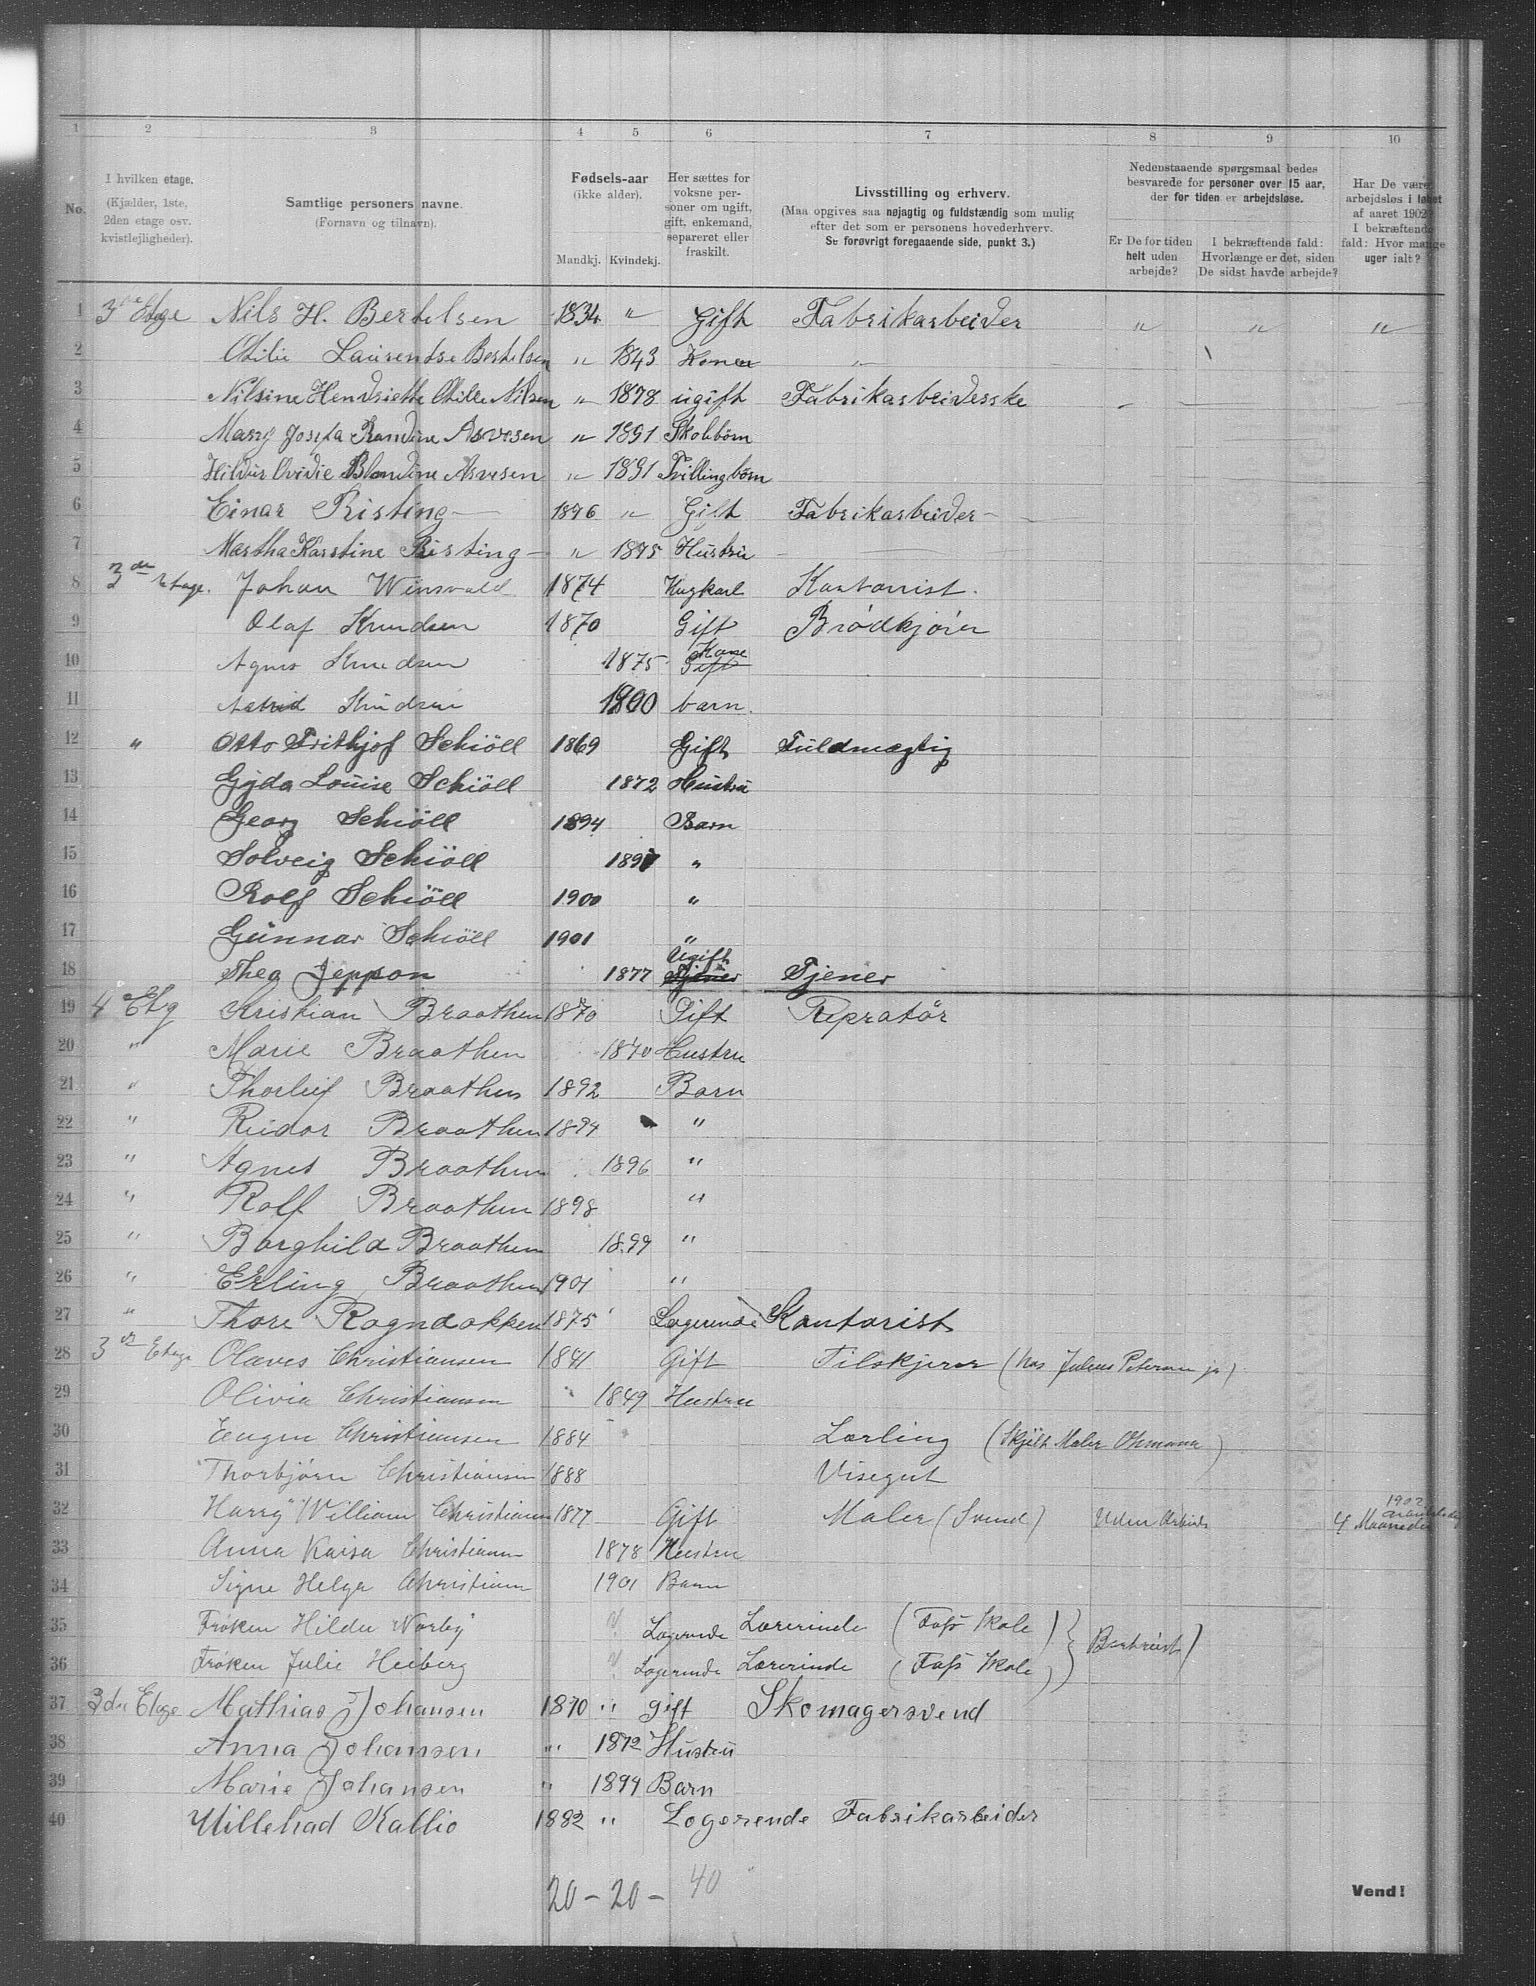 1 2 3 4 5 6 7 8 9 10
No. I hvilken etage. (Kjælder, 1ste, 2den etage osv. kvistlejligheder).
Samtlige personers navne. (Fornavn og tilnavn).
Fødsels-aar (ikke alder). Mandkj. Kvindekj.
Her sættes for voksne personer om ugift, gift, enkemand, separeret eller fraskilt.
Livsstilling og erhverv. (Maa opgives saa nøjagtig og fuldstændig som mulig efter det som er personens hovederhverv. Se forøvrigt foregaaende side, punkt 3.)
Nedenstaaende spørgsmaal bedes besvarede for personer over 15 aar, der for tiden er arbejdsløse.
Er De for tiden helt uden arbejde?
I bekræftende fald: Hvorlænge er det, siden De sidst havde arbejde?
Har De være arbejdsløs i løbet af aaret 1902? I bekræftende fald: Hvor mange uger ialt?
1 3die Etage Nils H. Bertelsen 1834 " Gift Fabrikarbeider " " "
2 Otilie Laurendse Bertelsen " 1843 Kone "
3 Nilsine Hendriette Otille Nilsen " 1878 ugift Fabrikarbeiderske "
4 Marry Josefa Randine Asvesen " 1891 Skolebørn
5 Hildur Ovidie Blondine Asvesen " 1891 Tvillingbørn
6 Einar Risting 1876 " Gift Fabrikarbeider
7 Martha Karstine Risting " 1875 Hustru
8 3die Etage. Johan Winsvald 1874 Ungkarl Kontorist.
9 Olaf Knudsen 1870 Gift Brødkjører
10 Agnes Knudsen 1875 Kone Gift
11 Astrid Knudsen 1900 barn.
12 " Otto Frithjof Schiöll 1869 Gift Fuldmægtig
13 Gyda Louise Schiöll 1872 Hustru
14 Georg Schiöll 1894 Barn
15 Solveig Schiöll 1897 "
16 Rolf Schiöll 1900 "
17 Gunnar Schiöll 1901 "
18 Thea Jeppson 1877 Ugift Tjener Tjener
19 4 Etg Kristian Braathen 1870 Gift Repratør
20 " Marie Braathen 1870 Hustru
21 " Thorleif Braathen 1892 Barn
22 " Reidar Braathen 1894 "
23 " Agnes Braathen 1896 "
24 " Rolf Braathen 1898 "
25 " Borghild Braathen 1899 "
26 " Erling Braathen 1901 "
27 " Thore Rogndokken 1875 Logerende Kontorist
28 3die Etage Olaves Christiansen 1841 Gift Tilskjerer (hos Julius Petersen jr)
29 Olivia Christiansen " 1849 Hustru
30 Eugen Christiansen 1884 Lærling (Skjilt Maler Ohmann)
31 Thorbjørn Christiansen 1888 Visegut
32 Harry William Christiansen 1877 Gift Maler (Svend) Uden Arbeid 4 Maaneder 1902
33 Anna Kaisa Christiansen 1878 Hustru
34 Signe Helga Christiansen 1901 Barn
35 Frøken Hilda Norby ? Logerende Lærerinde (Fass Skole)
36 Frøken Julie Heiberg ? Logerende Lærerinde (Fass Skole) } Bortreist)
37 3die Etage Mathias Johansen 1870 " gift Skomagersvend
38 Anna Johansen " 1872 Hustru
39 Marie Johansen " 1894 Barn
40 Uillehad Kallio 1882 " Logerende Fabrikarbeider
20 - 20 - 40
Vend!